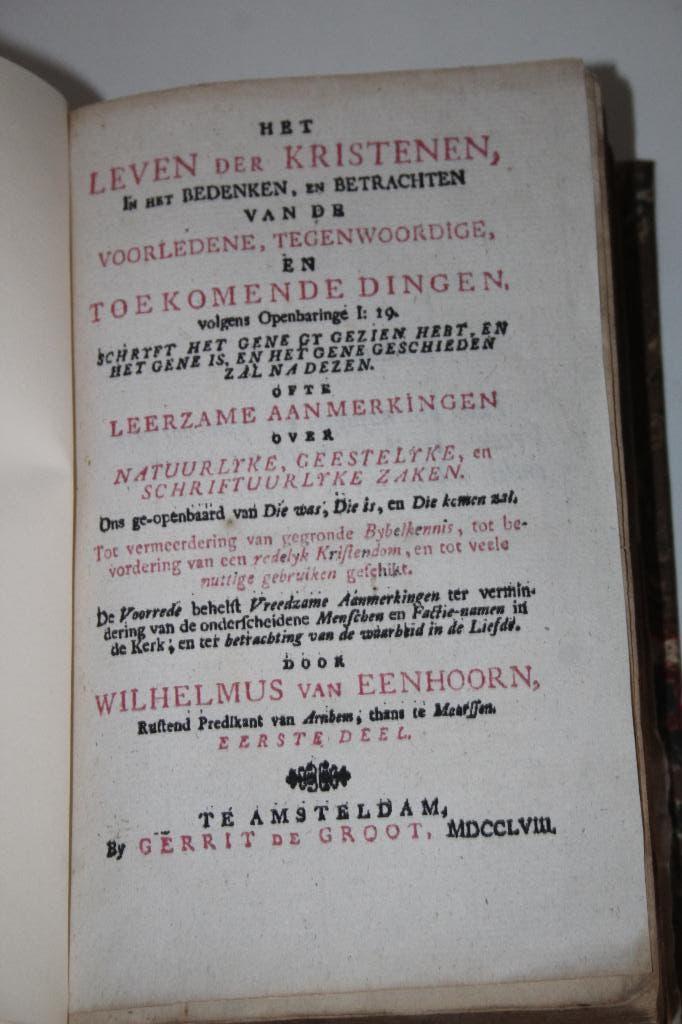 HET
LEVEN DER KRISTENEN,
IN HET BEDENKEN, EN BETRACHTEN
VAN DE
VOORLEDENE, TEGENWOORDIGE,
EN
TOEKOMENDE DINGEN,
volgens Openbaringe I: 19.
SCHRYFT HET GENE GY GEZIEN HEBT, EN
HET GENE IS, EN HET GENE GESCHIEDEN
ZAL NA DEZEN.
OFTE
LEERZAME AANMERKINGEN
OVER
NATUURLYKE, GEESTELYKE, en
SCHRIFTUURLYKE ZAKEN.
Ons ge-openbaard van Die was, Die is, en Die komen zal,
Tot vermeerdering van gegronde Bybelkennis, tot be-
vordering van een redelyk Kristendom, en tot veele
nuttige gebruiken geschikt.
De Voorrede behelst Vreedzame Aanmerkingen ter vermin-
dering van de onderscheidene Menschen en Factie-namen in
de Kerk; en ter betrachting van de waarheid in de Liefde.
DOOR
WILHELMUS VAN EENHOORN,
Rustend Predikant van Arnhem, thans te Maarssen.
EERSTE DEEL.
TE AMSTELDAM,
By GERRIT DE GROOT, MDCCLVIII.